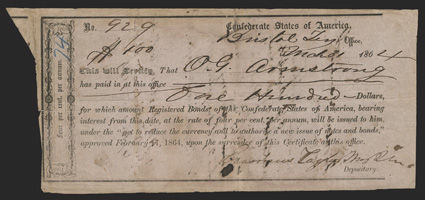 No. 929
Confederate States of America,
Bristol Office,
March 1864
This will Certify, That O. G. Armstrong
has paid in at this office
Five Hundred Dollars,
for which amount Registered Bonds of the Confederate States of America, bearing
interest from this date, at the rate of four per cent. per annum, will be issued to him,
under the "act to reduce the currency and to authorize a new issue of notes and bonds,"
approved February 17, 1864, upon the surrender of this Certificate at this office.
Depositary
Four per cent. per annum.